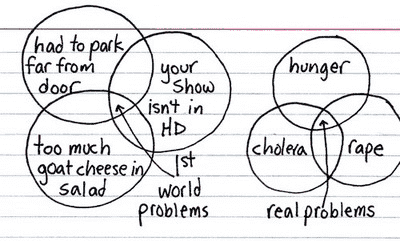 had to park
far from
door
your
show
isn't in
HD
too much
goat cheese in
salad
1st
world
problems
hunger
cholera
rape
real problems